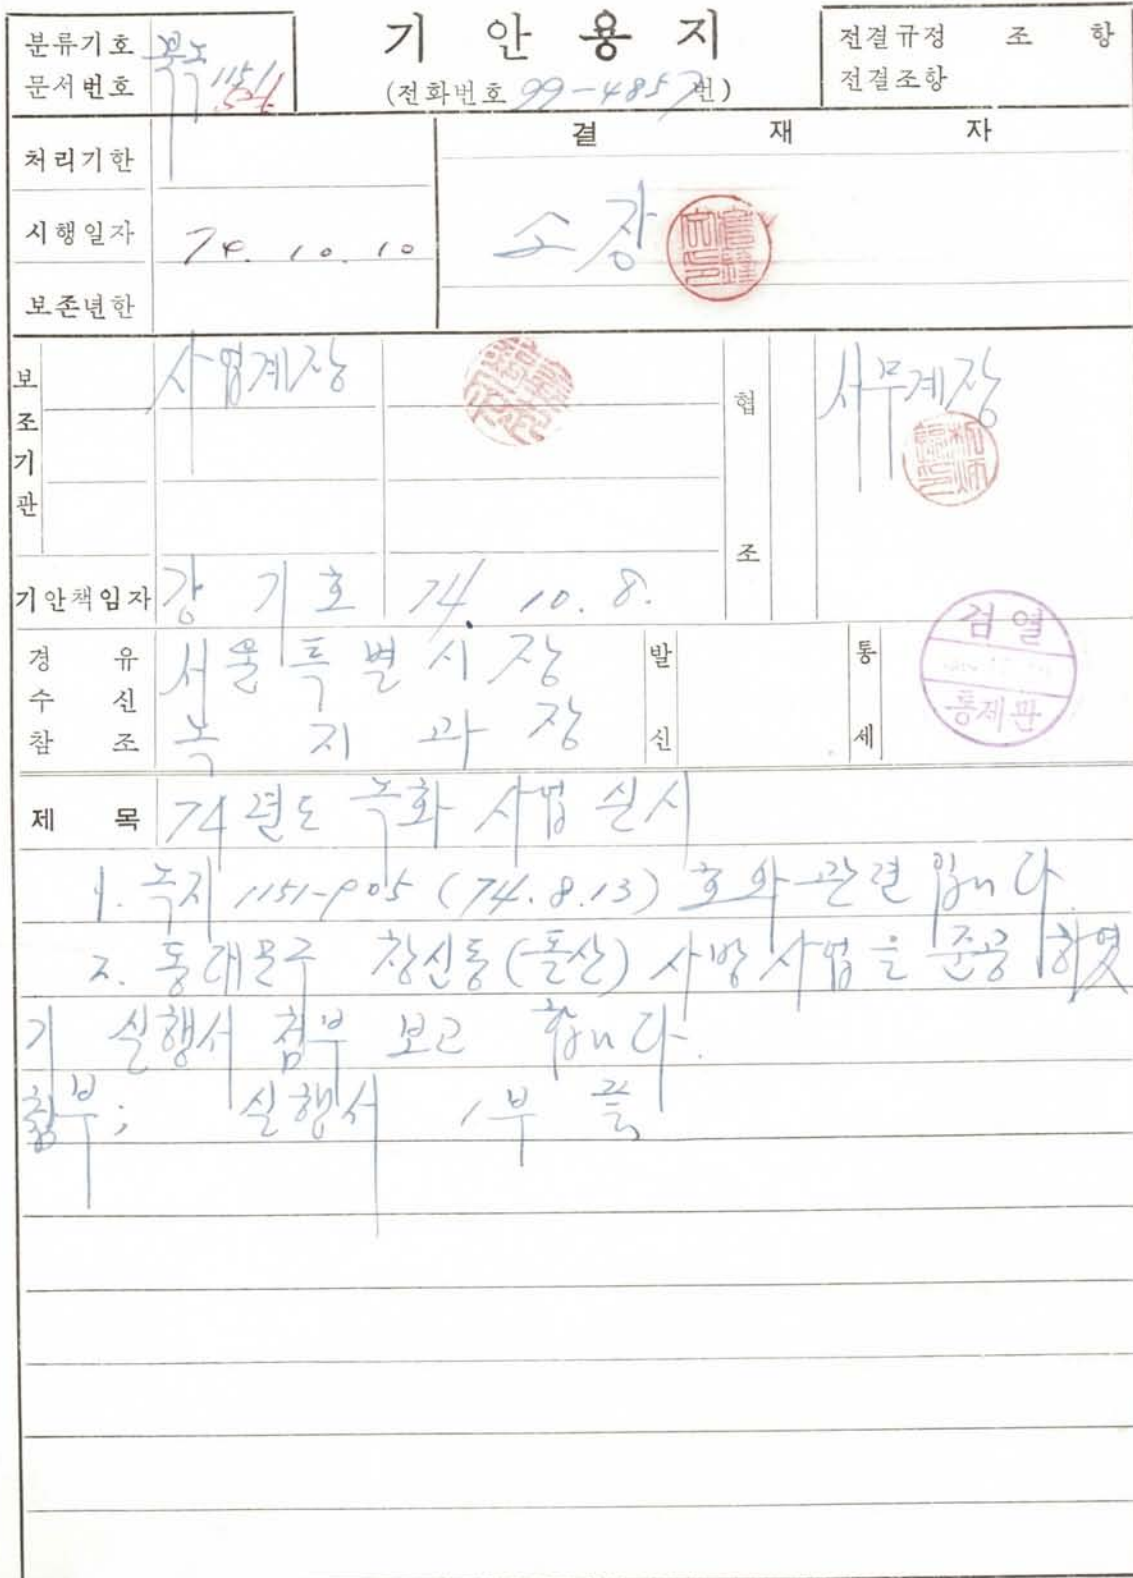 기 안 용 지
분류기호
문서번호 1151
(전화번호 99-4857번)
전결규정 조 항
전결조항
처리기한
결 재 자
시행일자 74. 10. 10
소장
보존년한
보조기관
사업계장
협조
서무계장
기안책임자 강 기 호 74. 10. 8.
경 유 서울특별시장
수 신
참 조 녹 지 과 장
발신
통세
검열
통제관
제 목 74년도 녹화 사업 실시
1. 녹지 1151-905 (74.8.13) 호와 관련입니다.
2. 동대문구 창신동(돌산) 사방사업을 준공 하였
기 실행서 첨부 보고 합니다.
첨부; 실행서 1부 끝